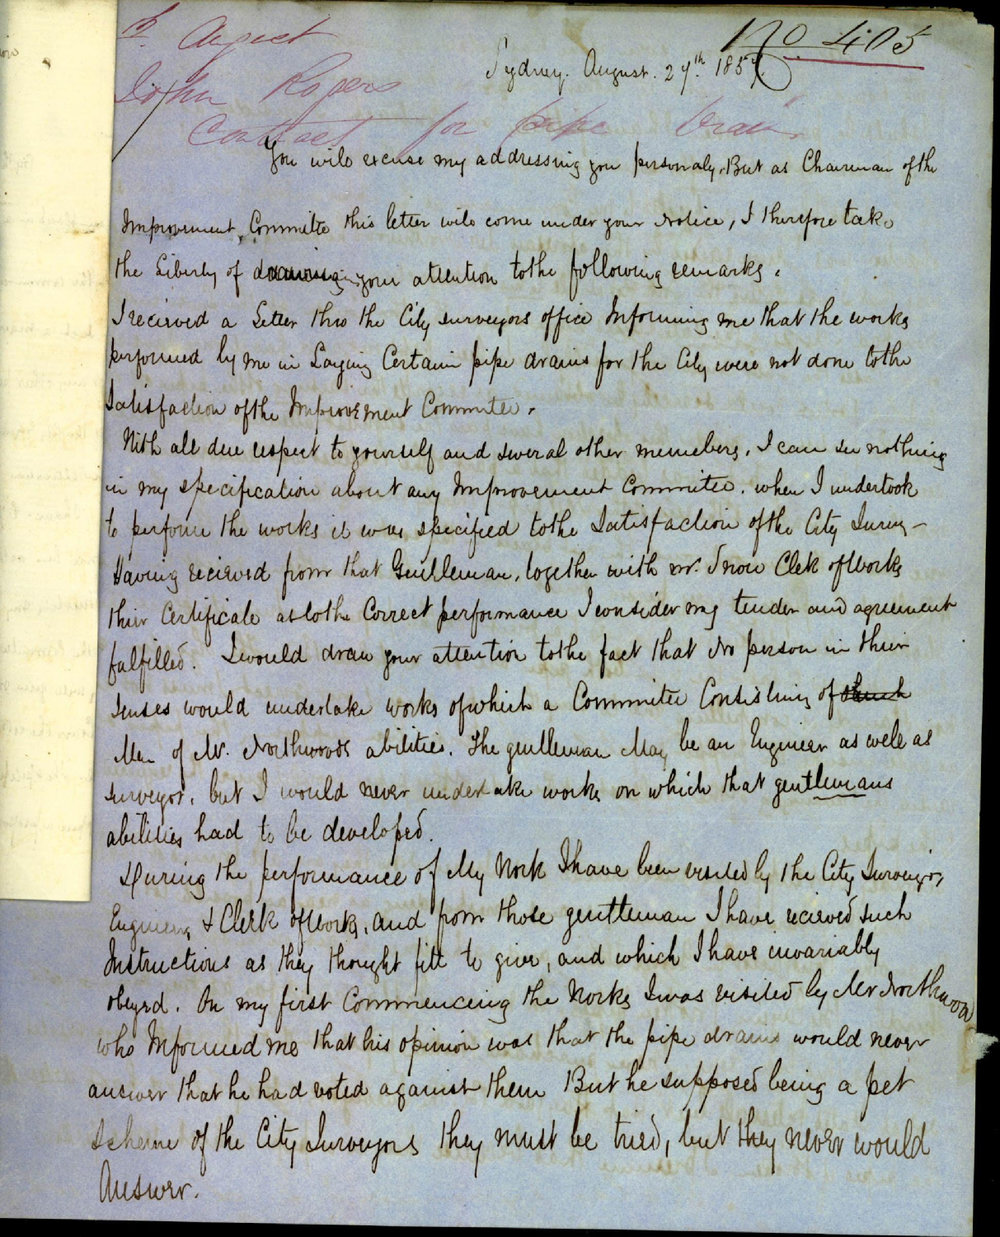 No 405
August
Sydney. August. 27th. 1857
John Rogers
Contract for pipe drain
You will excuse my addressing you personaly. But as Chairman of the
Improvement Committe this letter will come under your Notice, I therefore take
the Liberty of drawing your attention tothe following remarks.
I recieved a Letter thro the City surveyors office Informing me that the works
performed by me in Laying Certain pipe drains for the City were not done tothe
Satisfaction ofthe Improvement Commitee.
With all due respect to yourself and several other memebers, I can see nothing
in my specification about any Improvement Commitee. when I undertook
to perform the works it was specified tothe Satisfaction ofthe City Survey-
Having recieved from that Gentleman, together with Mr. Snow Clek ofWorks
thier Certificate astothe Correct performance I consider my tender and agreement
fulfilled. I would draw your attention tothe fact that No person in thier
senses would undertake works ofwhich a Commitee Consisting of
Men of Mr. Northwoods abilities. The gentleman May be an Engineer as well as
surveyor, but I would never undertake works on which that gentlemans
abilities had to be developed.
During the performance of My Work I have been visited by the City Surveyor,
Engineer, & Clerk ofWorks, and from those gentleman I have recieved such
Instructions as they thought fitt to give, and which I have invariably
obeyed. On my first Commenceing the Works I was visited by Mr Northwood
who Informed me that his opinion was that the pipe drains would never
answer that he had voted against them But he supposed being a pet
Scheme of the City Surveyors they must be tried, but they never would
Answer.